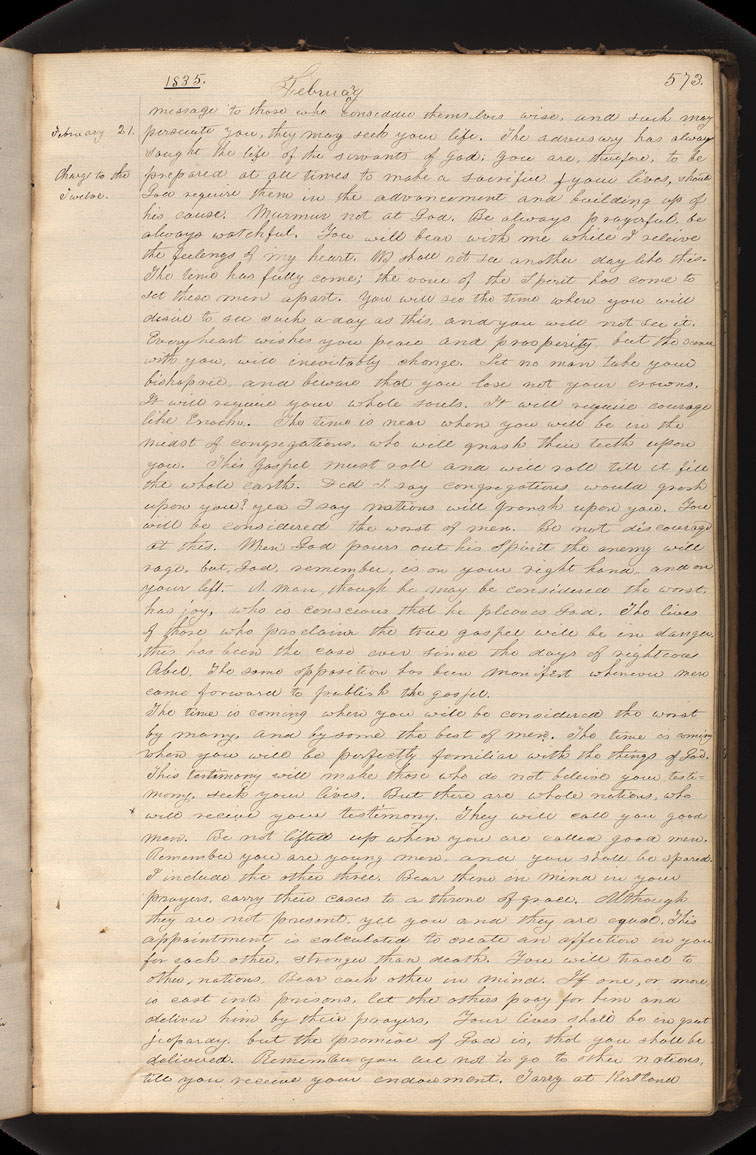 1835.
February
573.
February 21.
Charge to the
Twelve.
message to those who consider themselves wise, and such may
persecute you, they may seek your life. The adversary has always
sought the life of the servants of God; you are, therefore, to be
prepared at all times to make a sacrifice of your lives, should
God require them in the advancement and building up of
his cause. Murmur not at God. Be always prayerful, be
always watchful. You will bear with me while I releive
the feelings of my heart. We shall not see another day like this.
The time has fully come; the voice of the Spirit has come to
set these men apart. You will see the time when you will
desire to see such a day as this, and you will not see it.
Every heart wishes you peace and prosperity, but the scene
with you, will inevitably change. Let no man take your
bishoprick, and beware that you lose not your crowns.
It will require your whole souls. It will require courage
like Enochs. The time is near when you will be in the
midst of congregations, who will gnash their teeth upon
you. This Gospel must roll and will roll till it fills
the whole earth. Did I say congregations would gnash
upon you? yea I say nations will gnash upon you. You
will be considered the worst of men. Be not discouraged
at this. When God pours out his Spirit the enemy will
rage, but, God, remember, is on your right hand and on
your left. A man, though he may be considered the worst,
has joy, who is conscious that he pleases God. The lives
of those who proclaim the true gospel will be in danger,
this has been the case ever since the days of righteous
Abel. The same opposition has been manifest whenever men
came forward to publish the gospel.
The time is coming when you will be considered the worst
by many, and by some the best of men. The time is coming
when you will be perfectly familiar with the things of God.
This testimony will make those who do not beleive your testi=
mony, seek your lives. But there are whole nations, who
will receive your testimony. They will call you good
men. Be not lifted up when you are called good men.
Remember you are young men, and you shall be spared.
I include the other three. Bear them in mind in your
prayers, carry their cases to a throne of grace. Although
they are not present, yet you and they are equal. This
appointment is calculated to create an affection in you
for each other, stronger than death. You will travel to
other nations, Bear each other in mind. If one, or more,
is cast into prisons, let the others pray for him and
deliver him by their prayers, Your lives shall be in great
jeopardy, but the promise of God is, that you shall be
delivered. Remember you are not to go to other nations,
till you receive your endowment. Tarry at Kirtland